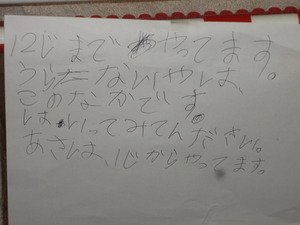 12じまでやってます。
うらないやは、
このなかです。
はいってみてんださい。
あさは、1じからやってます。